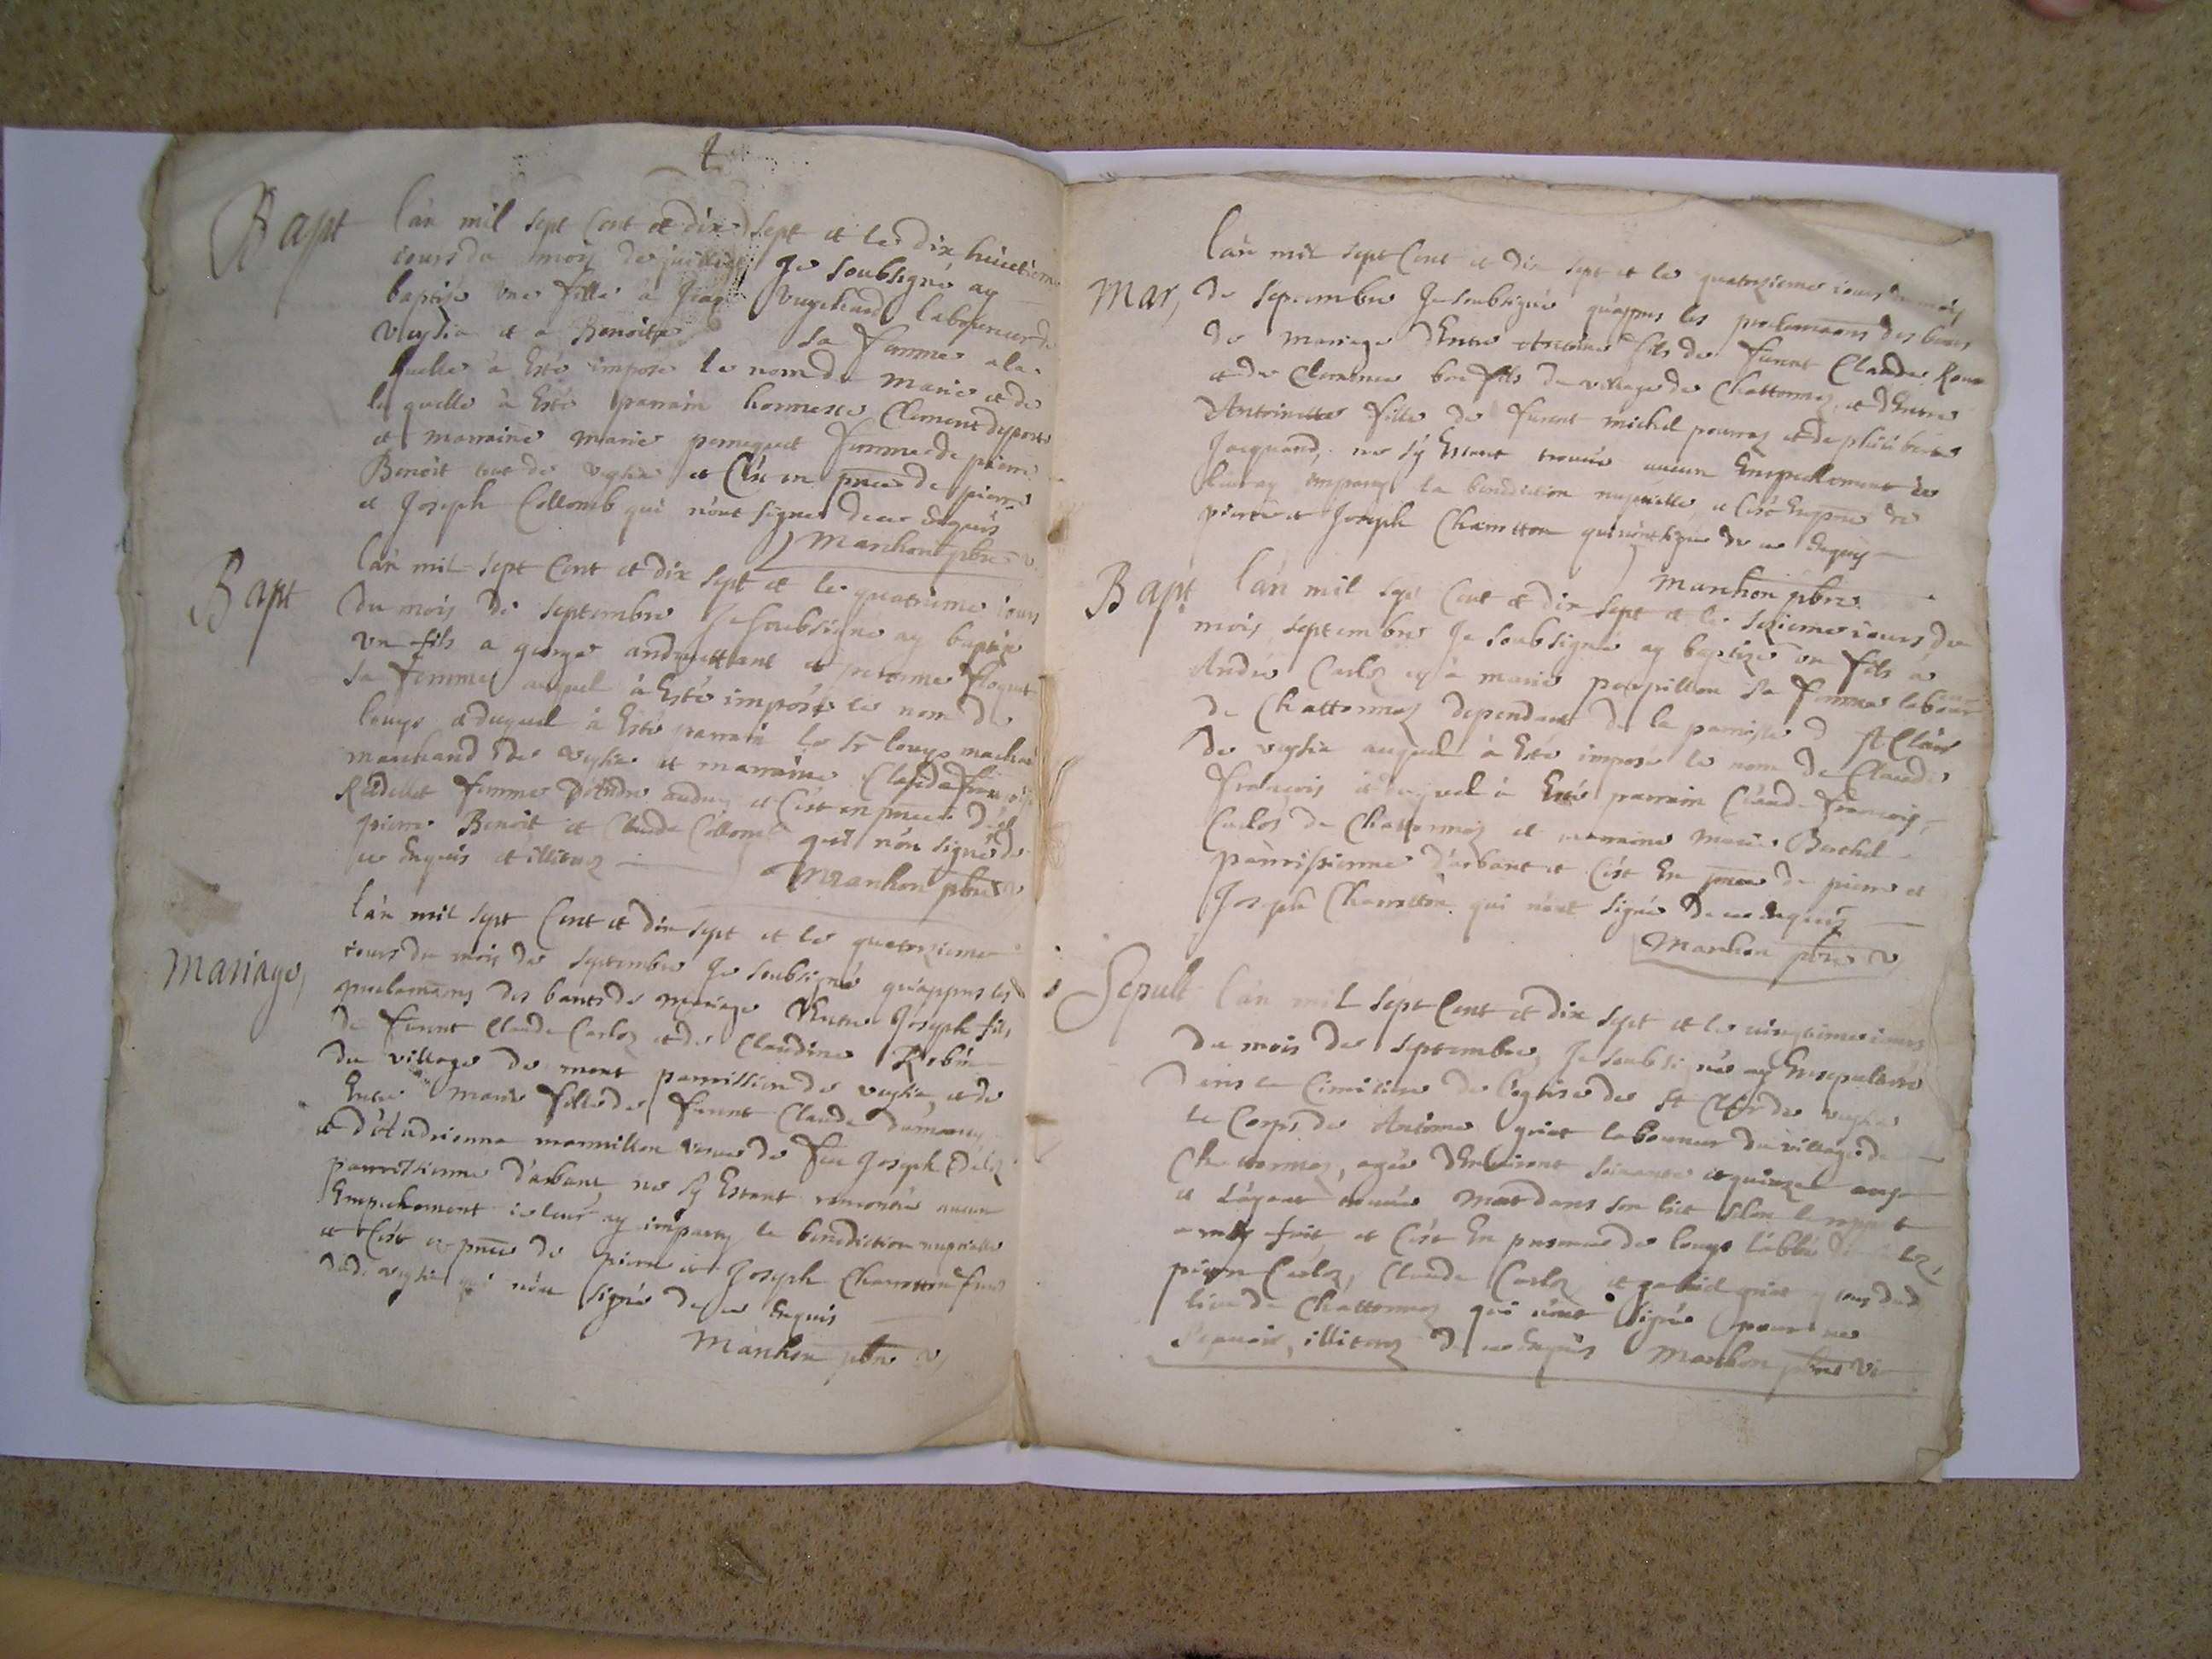 Bapt
l'an mil sept Cent et dix sept et le dix huictieme
iours du mois de juillet Je soubsigné ay
baptisé une fille à Jeaq laboureur de
Veysia et a Benoite sa femme a la
quelle à Esté imposé le nom de Marie et de
laquelle à Esté parrain honneste Clement
et marraine Marie femme de pierre
Benoit tout de veysia et C'est en pnce de pierre
et Joseph Collomb qui n'ont signé de ce Enquis
Marihon pbre
Bapt
l'an mil sept Cent et dix sept et le quatrieme iours
du mois de septembre Je soubsigné ay baptizé
un fils a george et
sa femme auquel à Esté imposé le nom de
louys et duquel à Esté parrain le Sr louys
marchand de veysia et marraine Clauda françoise
femme D'Andre et C'est en pnce de
pierre Benoit et Claude Collomb qui n'on signé de
ce Enquis et illiterez
Marihon pbre
Mariage,
l'an mil sept Cent et dix sept et le quatorzieme
iours du mois de septembre Je soubsigné qu'appres les
proclamaons des bants de mariage Entre Joseph fils
de furent Claude Carloz et de Claudine Robin
du village de mont parroissien de veysia, et de
Entre Marie fille de furent Claude
et d'Adrienne veuve de feu Joseph
parroissienne d'arbant ne sy Estant rencontré aucun
Empechement ie leur ay imparty la benediction nuptialle
et C'est en pnce de pierre et Joseph Chamotton
dud veysia qui n'ont signé de ce Enquis
Marihon pbre
Mar,
l'an mil sept Cent et dix sept et le quatorzieme iours du mois
de septembre Je soubsigné qu'appres les proclamaons des bants
de mariage Entre Antoine fils de furent Claude
et de Clemence du village de Chattonnaz, et d'Entre
Antoinette fille de furent michel et de philiberte
Jacquand, ne sy Estant trouvé aucun Empechement ie
leur ay imparty la benediction nuptialle, et C'est En pnce de
pierre et Joseph Chamotton qui n'ont signé de ce Enquis
Marihon pbre
Bapt
l'an mil sept Cent et dix sept et le sezieme iours du
mois septembre Je soubsigné ay baptizé un fils à
André Carloz et à marie papillon sa femme labour
de Chattonnaz dependant de la parroisse d St Clair
de veysia auquel à Esté imposé le nom de Claude
françois et duquel à Esté parrain Claude françois
Carloz de Chattonnaz et marraine Marie Berthet
parroissienne d'arbant et C'est En pnce de pierre et
Joseph Chamotton qui n'ont signé de ce Enquis
Marihon pbre
Sepult
l'an mil sept Cent et dix sept et le vingtieme iours
du mois de septembre, Je soubsigné ay Ensepulturé
dans le Cimitiere de l'eglise de St Clair de veysia
le Corps de Antoine griat laboureur du village de
Chattonnaz, agée d'Environt soixante et quinze ans
et s'ayant trouvé Mort dans son lict selon le rapport
a moy fait, et C'est En presence de louys
pierre Carloz, Claude Carloz et gabriel griat tous dud
lieu de Chattonnaz qui n'ont signé pour ne
scavoir, illiterez de ce Enquis Marihon pbre vi